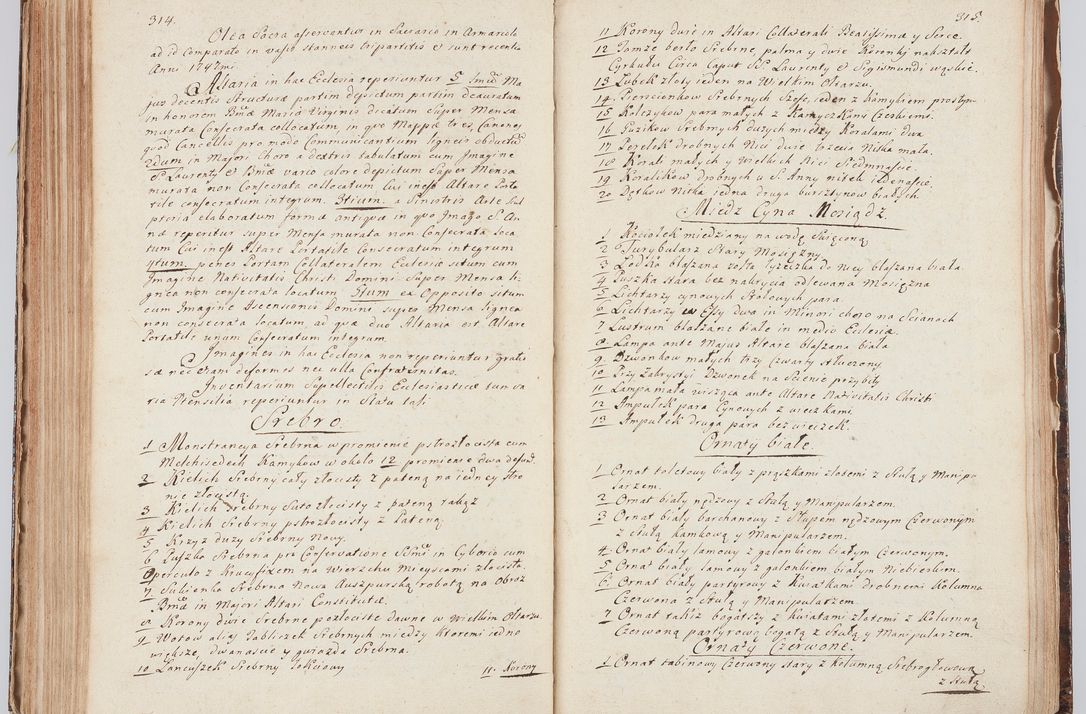 314.
Olea Sacra asservantur in Sacrario in Armariolo
ad id comparato in vasis stanneis tripartitis et sunt recentia
Anni 1747mi.
Altaria in hac Ecclesia reperiuntur 5 Imũ Ma-
jus decentis Structuræ partim depictum partim deauratum
in honorem Bmæ Mariæ Virginis dicatum Super Mensa
murata Consecrata collocatum, in quo Mappæ tres, Canones
quod Cancellis pro modo Communicantium ligneis obductũ
2dum in Majori Choro a dextris tabulatum cum Imagine
S. Laurenty et Bmæ vario colore depictum Super Mensa
murata non Consecrata collocatum Cui inest Altare Porta-
tile consecratum integrum. 3tium. a Sinistris Arte Scul-
ptoria elaboratum forma antiqua in quo Imago S. An-
næ reperitur super Mensa murata non Consecrata loca-
tum Cui inest Altare Portatile Consecratum integrum
4tum. penes Portam Collateralem Ecclesiæ situm cum
Imagine Nativitatis Christi Domini Super Mensa li-
gnea non consecrata locatum 5tum ex Opposito situm
cum Imagine Ascensionis Domini super Mensa lignea
non consecrata locatum ad quæ duo Altaria est Altare
Portatile unum Consecratum integrum.
Imagines in hac Ecclesia non reperiuntur gratio-
sæ nec etiam deformes nec ulla Confraternitas.
Inventarium Supellectilis Ecclesiasticæ
ria Utensilia reperiuntur in Statu tali
Srebro.
1 Monstrancya Srebrna w promienie pstrozłocista cum
Melchisedech Kamykow w około 12 promienie dwa
2. Kielich Srebrny cały złocisty z pateną na iedney stro-
nie złocistą.
3 Kielich Srebrny Suto złocisty z pateną takąż
4 Kielich Srebrny pstrozłocisty z Pateną.
5 Krzyż duzy Srebrny Nowy.
6 Puszka Srebrna pro Conservatione SSmi in Cyborio cum
Operculo z Krucyfixem na Wierzchu Mieyscami złocista.
7 Sukienka Srebrna Nowa Auszpurską robotą na Obraz
Bmæ in Majori Altari Constitutæ.
8 Korony dwie Srebrne pozłociste dawne w Wielkim Ołtarzu
9 Wotow alias Tabliczek Srebrnych miedzy ktoremi iedno
większe, dwanascie y gwiazda Srebrna.
10 Lancuszek Srebrny łokciowy
11. Korony
315.
11 Korony dwie in Altari Collaterali Beatissimæ y Serce.
12 Tamże berło Srebrne, palma y dwie Korenki nakształt
Cyrkułu Circa Caput SS. Laurenty et Sigismundi wąskie.
13 Łubek złoty ieden na Wielkim Ołtarzu.
14 Pierscionkow Srebrnych Szesc, ieden z Kamykiem prostym
15 Kolczykow para małych z Kamyczkami Czeskiemi.
16 Guzikow Srebrnych duzych między Koralami dwa
17 Perełek drobnych Nici dwie trzecia Nitka mała.
18 Korali małych y Wielkich Nici Siedmnascie.
19 Koralikow drobnych u S. Anny nitek iedenascie.
20 Dętkow Nitka iedna druga bursztynow białych.
Miedz Cyna Mosiądz.
1 Kociołek miedziany na wodę Swięconą
2 Turybularz Stary Mosięzny
3 Łodka blaszana zołta łyzeczka do niey blaszana biała.
4 Puszka stara bez nakrycia odlewana Mosięzna
5 Lichtarzy cynowych Stołowych para.
6 Lichtarzy w Essy dwa in Minori choro na Scianach
7 Lustrum blaszane białe in medio Ecclesiæ.
8 Lampa ante Majus Altare blaszana biała
9. Dzwonkow małych trzy czwarty stłuczony
10 Przy Zakrystyi Dzwonek na Scienie przybity
11 Lampa mała wisząca ante Altare Nativitatis Christi
12 Ampułek para Cynowych z wieczkami
13 Ampułek druga para bez wieczek.
Ornaty białe.
1 Ornat toletowy biały z prązkami złotemi z Stułą y Manipu-
larzem.
2 Ornat biały nędzowy z Stułą y Manipularzem.
3 Ornat biały barchanowy z Słupem nędzowym Czerwonym
z stułą kamkową y Manipularzem.
4. Ornat biały lamowy z galonkiem białym Czerwonym.
5 Ornat biały lamowy z galonkiem białym Niebieskim.
6 Ornat biały partyrowy z Kwiatkami drobnemi Kolumna
Czerwona z Stułą y Manipularzem.
7 Ornat takiż bogatszy z Kwiatami złotemi z Kolumną
Czerwoną partyrową bogatą z Stułą y Manipularzem.
Ornaty Czerwone.
1 Ornat tabinowy Czerwony stary z Kolumną Srebrogłowową
z Stułą